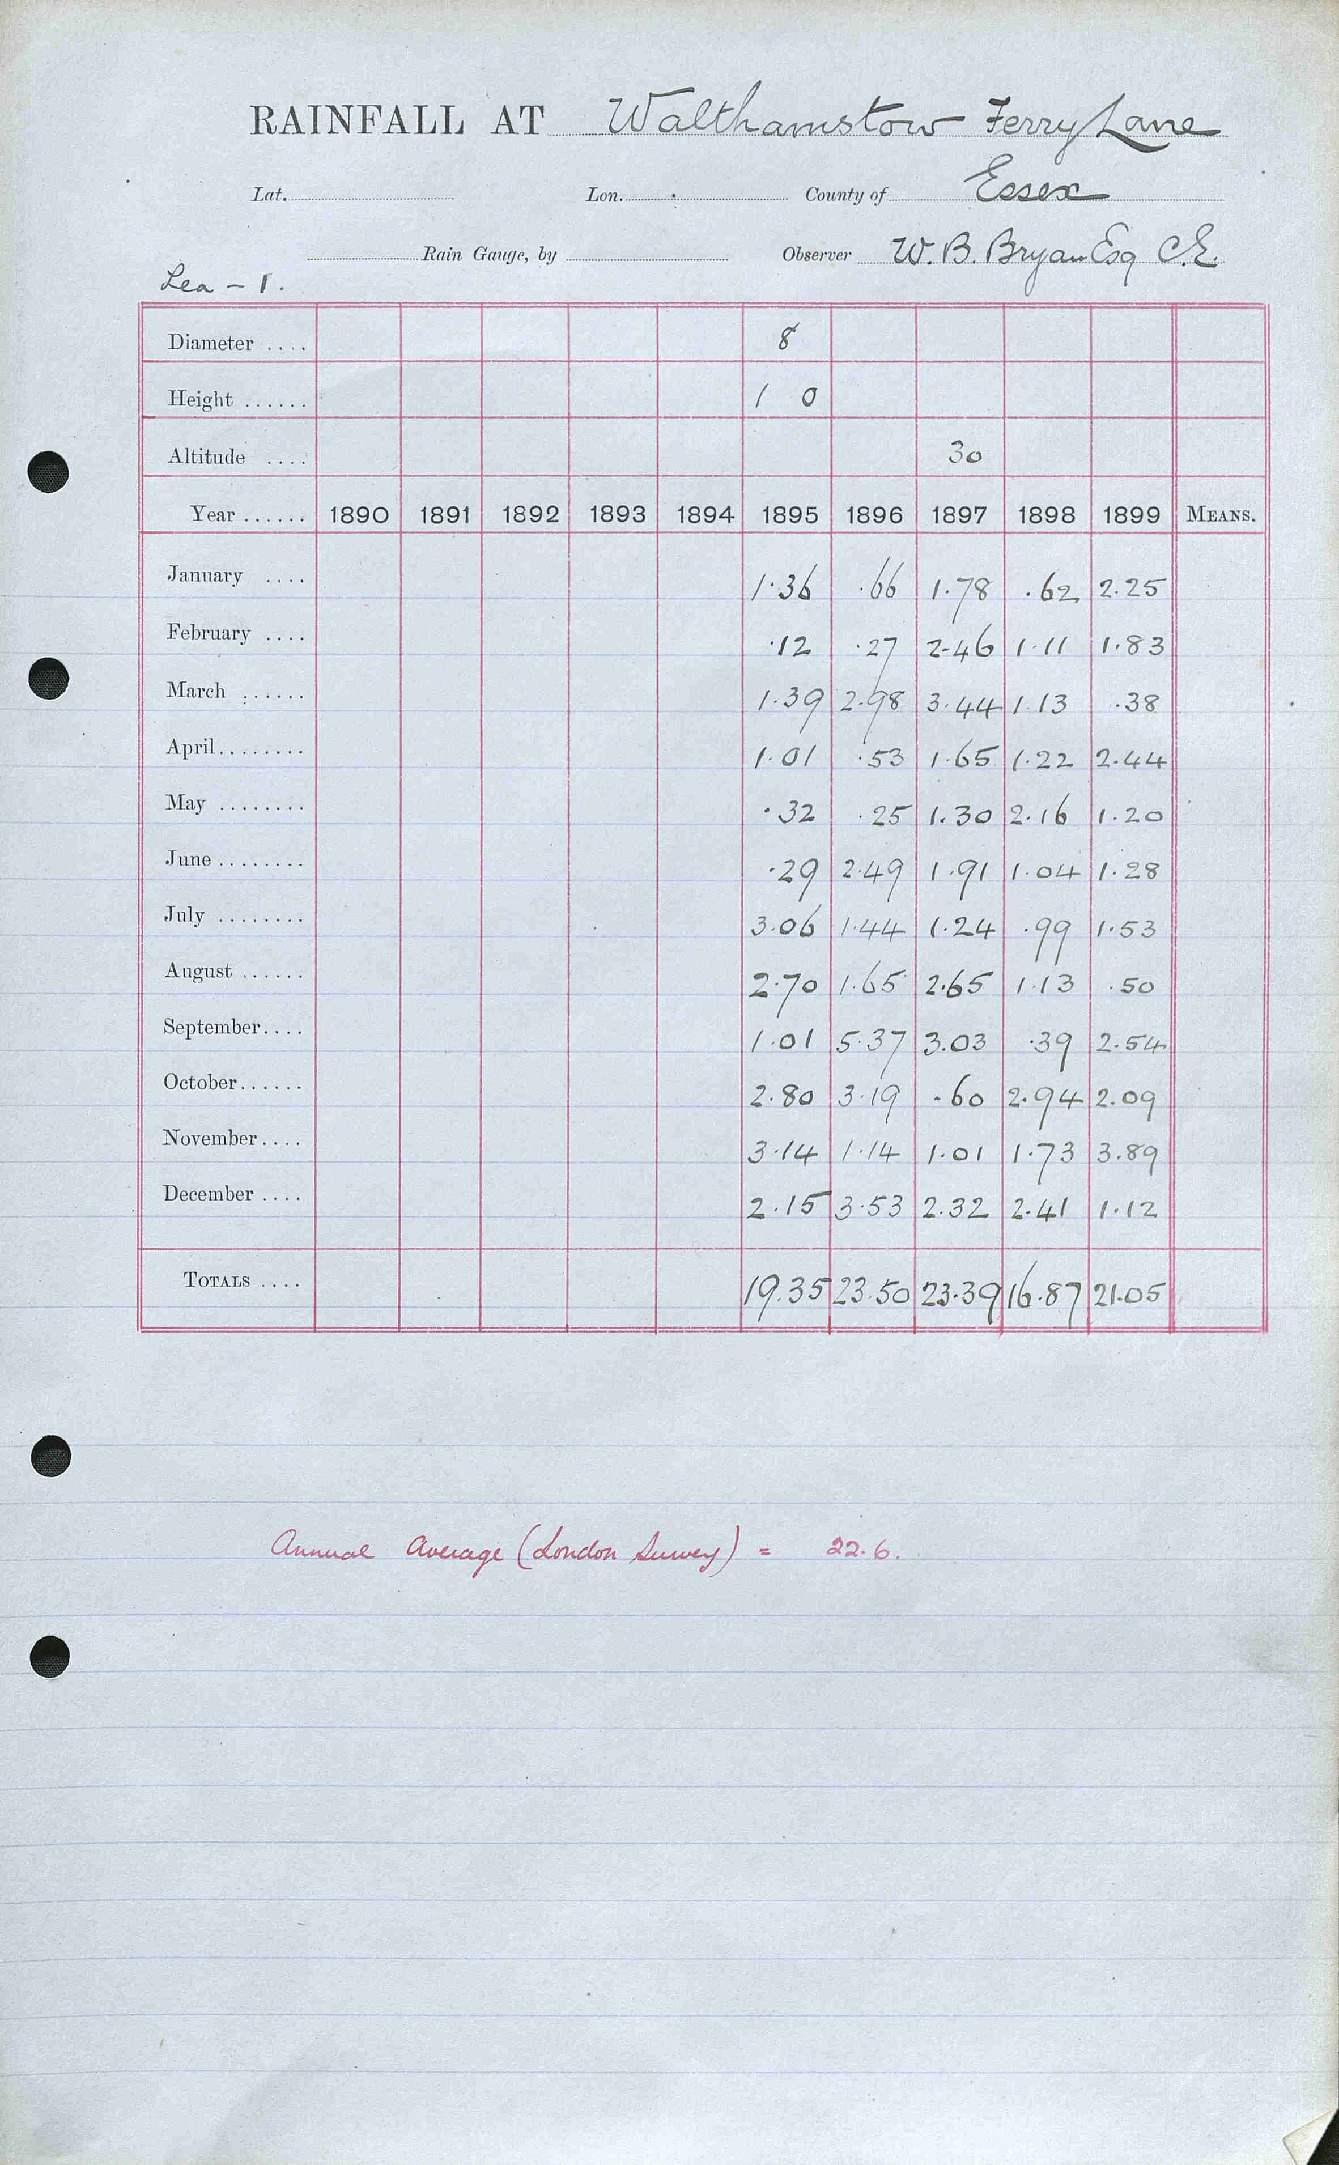 RAINFALL AT Walthamstow Ferry Lane
Lat. Lon. County of Essex
Rain Gauge, by Observer W. B. Bryan Esq C.E.
Lea - 1.
Diameter .... 8
Height ...... 1 0
Altitude .... 30
Year ...... 1890 1891 1892 1893 1894 1895 1896 1897 1898 1899 MEANS.
January .... 1.36 .66 1.78 .62 2.25
February .... .12 .27 2.46 1.11 1.83
March ...... 1.39 2.98 3.44 1.13 .38
April........ 1.01 .53 1.65 1.22 2.44
May ........ .32 .25 1.30 2.16 1.20
June ........ .29 2.49 1.91 1.04 1.28
July ........ 3.06 1.44 1.24 .99 1.53
August ...... 2.70 1.65 2.65 1.13 .50
September.... 1.01 5.37 3.03 .39 2.54
October...... 2.80 3.19 .60 2.94 2.09
November.... 3.14 1.14 1.01 1.73 3.89
December .... 2.15 3.53 2.32 2.41 1.12
TOTALS .... 19.35 23.50 23.39 16.87 21.05
Annual Average (London Survey) = 22.6.